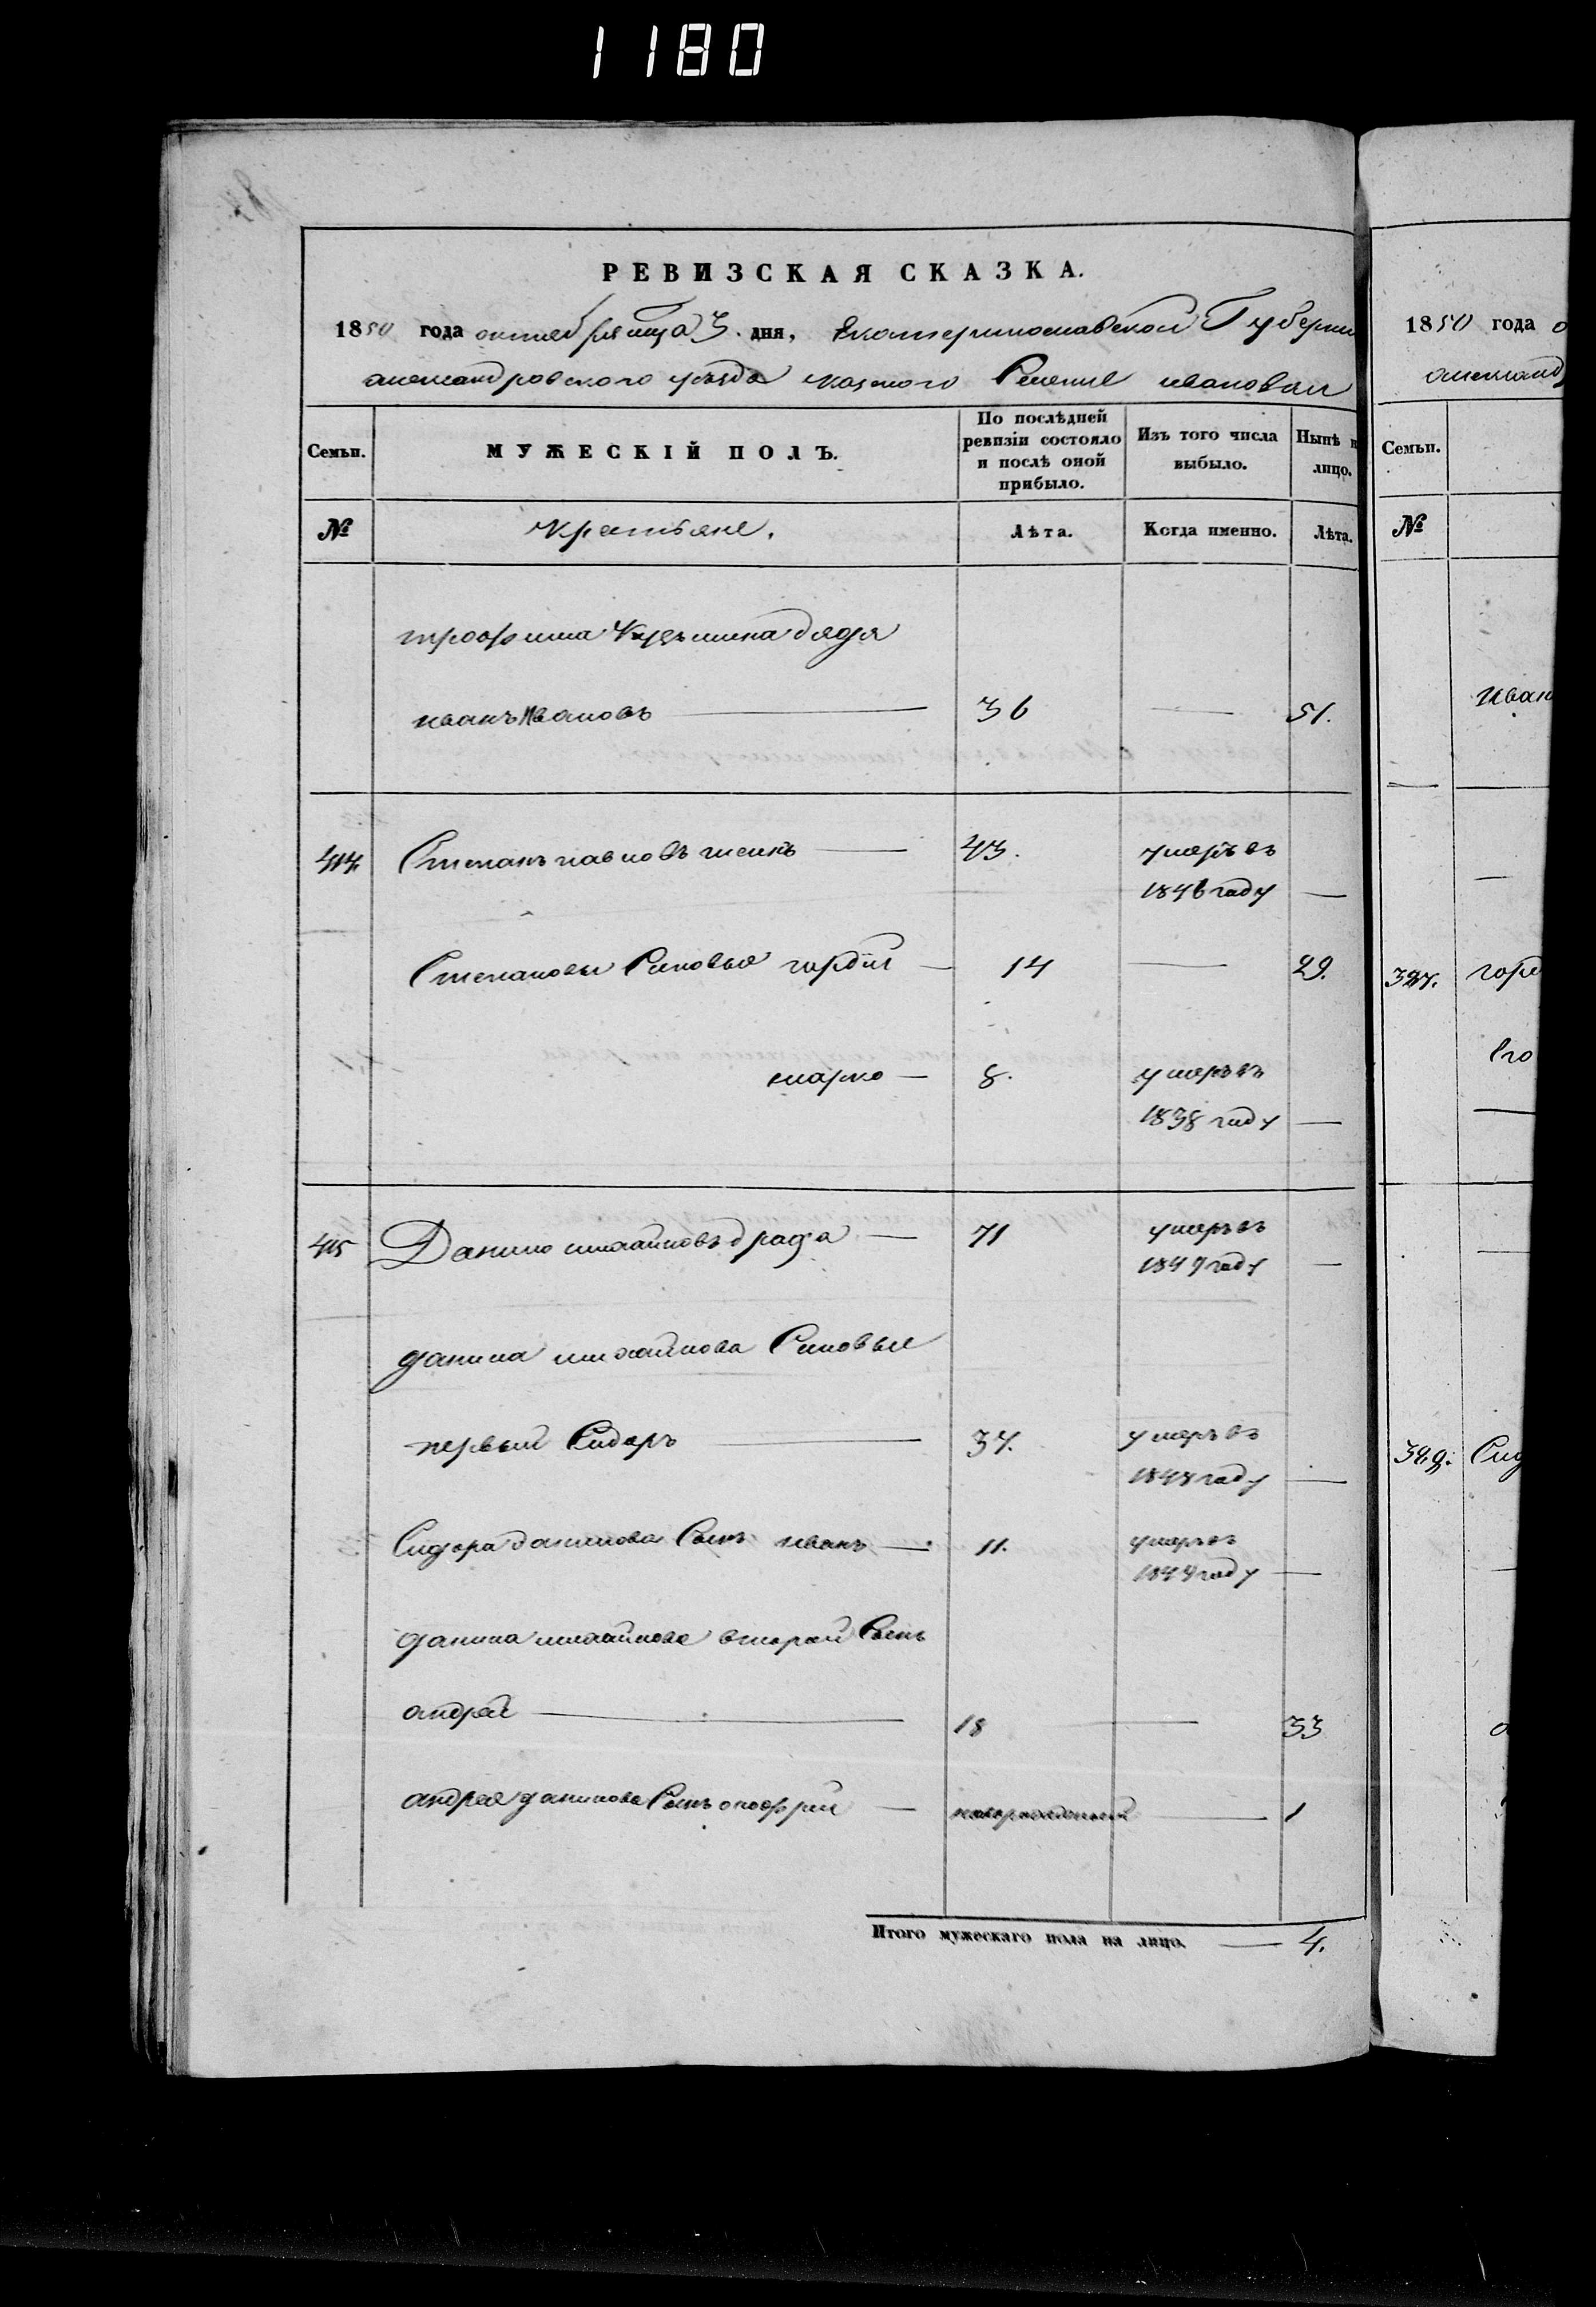 1180
РЕВИЗСКАЯ СКАЗКА.
1850 года октября мца 3 дня, Екатеринославской Губернии
александровского уезда казеного Селения ивановки
Семьи.
МУЖЕСКІЙ ПОЛЪ.
По послѣдней ревизіи состояло и послѣ оной прибыло.
Изъ того числа выбыло.
Нынѣ н лицо.
№
Крестьяне.
Лѣта.
Когда именно.
Лѣта.
трофима дядя
иванъ Ивановъ — 36 — 51.
Степанъ павловъ — 43. умеръ въ
1846 году —
Степановы Сыновья гордій — 14 — 29.
марко — 8. умеръ въ
1838 году —
415 Данило михайловъ — 71 умеръ въ
1847 году —
данила михайлова Сыновья
первый Сидоръ — 37. умеръ въ
1848 году —
Сидора данилова Сынъ иванъ — 11. умеръ въ
1844 году —
данила михайлова второй Сынъ
андрей — 18 — 33
андрея данилова Сынъ онофрій — новорожденный — 1
Итого мужескаго пола на лицо. — 4.
1850 года о
александ
Семьи.
№
иван
327. горд
его
329. Сид